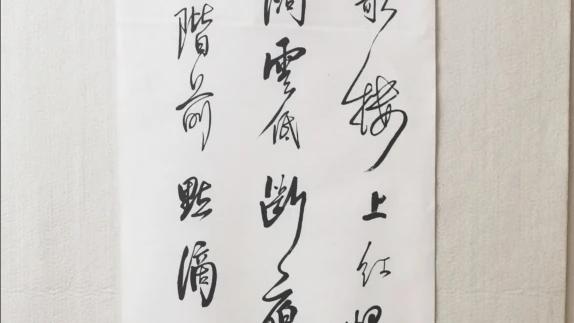 歌樓上紅
闊雲低斷雁
階前點滴